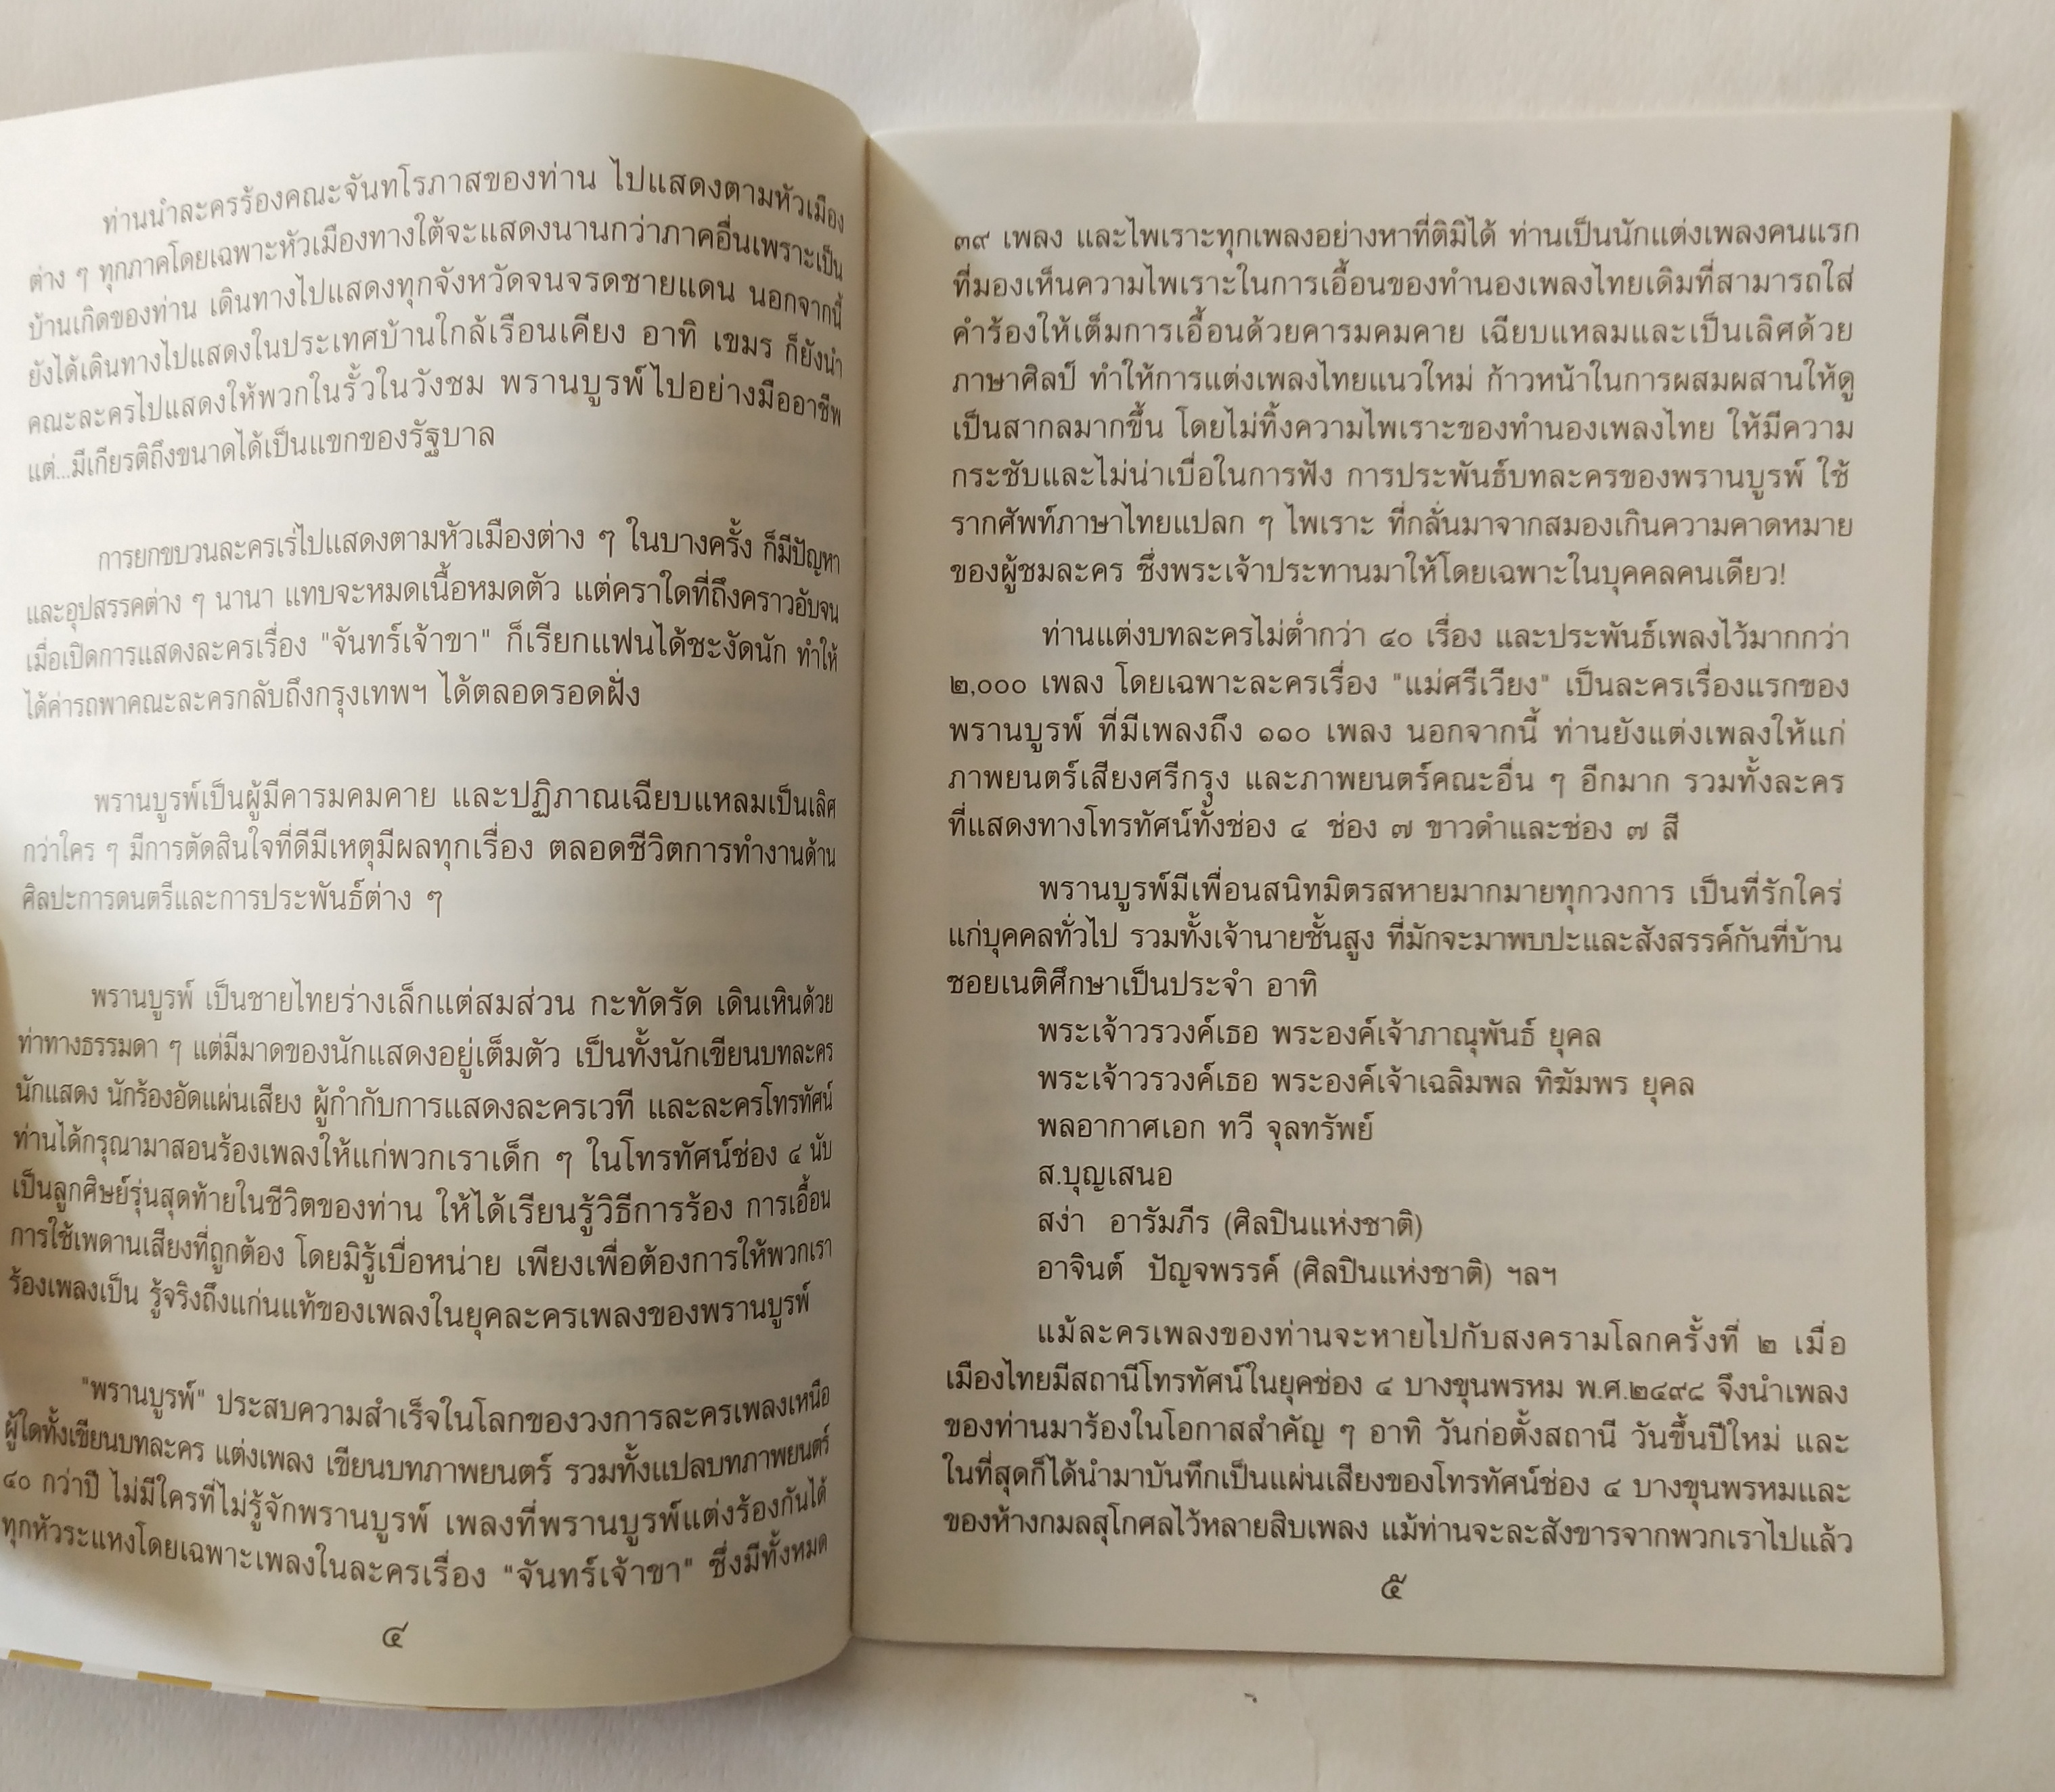 ท่านนำละครร้องคณะจันทโรภาสของท่าน ไปแสดงตามหัวเมือง
ต่าง ๆ ทุกภาคโดยเฉพาะหัวเมืองทางใต้จะแสดงนานกว่าภาคอื่นเพราะเป็น
บ้านเกิดของท่าน เดินทางไปแสดงทุกจังหวัดจนจรดชายแดน นอกจากนี้
ยังได้เดินทางไปแสดงในประเทศบ้านใกล้เรือนเคียง อาทิ เขมร ก็ยังนำ
คณะละครไปแสดงให้พวกในรั้วในวังชม พรานบูรพ์ไปอย่างมืออาชีพ
แต่...มีเกียรติถึงขนาดได้เป็นแขกของรัฐบาล
การยกขบวนละครเร่ไปแสดงตามหัวเมืองต่าง ๆ ในบางครั้ง ก็มีปัญหา
และอุปสรรคต่าง ๆ นานา แทบจะหมดเนื้อหมดตัว แต่คราใดที่ถึงคราวอับจน
เมื่อเปิดการแสดงละครเรื่อง "จันทร์เจ้าขา" ก็เรียกแฟนได้ชะงัดนัก ทำให้
ได้ค่ารถพาคณะละครกลับถึงกรุงเทพฯ ได้ตลอดรอดฝั่ง
พรานบูรพ์เป็นผู้มีคารมคมคาย และปฏิภาณเฉียบแหลมเป็นเลิศ
กว่าใคร ๆ มีการตัดสินใจที่ดีมีเหตุมีผลทุกเรื่อง ตลอดชีวิตการทำงานด้าน
ศิลปะการดนตรีและการประพันธ์ต่าง ๆ
พรานบูรพ์ เป็นชายไทยร่างเล็กแต่สมส่วน กะทัดรัด เดินเหินด้วย
ท่าทางธรรมดา ๆ แต่มีมาดของนักแสดงอยู่เต็มตัว เป็นทั้งนักเขียนบทละคร
นักแสดง นักร้องอัดแผ่นเสียง ผู้กำกับการแสดงละครเวที และละครโทรทัศน์
ท่านได้กรุณามาสอนร้องเพลงให้แก่พวกเราเด็ก ๆ ในโทรทัศน์ช่อง ๔ นับ
เป็นลูกศิษย์รุ่นสุดท้ายในชีวิตของท่าน ให้ได้เรียนรู้วิธีการร้อง การเอื้อน
การใช้เพดานเสียงที่ถูกต้อง โดยมิรู้เบื่อหน่าย เพียงเพื่อต้องการให้พวกเรา
ร้องเพลงเป็น รู้จริงถึงแก่นแท้ของเพลงในยุคละครเพลงของพรานบูรพ์
"พรานบูรพ์" ประสบความสำเร็จในโลกของวงการละครเพลงเหนือ
ผู้ใดทั้งเขียนบทละคร แต่งเพลง เขียนบทภาพยนตร์ รวมทั้งแปลบทภาพยนตร์
๔๐ กว่าปี ไม่มีใครที่ไม่รู้จักพรานบูรพ์ เพลงที่พรานบูรพ์แต่งร้องกันได้
ทุกหัวระแหงโดยเฉพาะเพลงในละครเรื่อง "จันทร์เจ้าขา" ซึ่งมีทั้งหมด
๔
๓๙ เพลง และไพเราะทุกเพลงอย่างหาที่ติมิได้ ท่านเป็นนักแต่งเพลงคนแรก
ที่มองเห็นความไพเราะในการเอื้อนของทำนองเพลงไทยเดิมที่สามารถใส่
คำร้องให้เต็มการเอื้อนด้วยคารมคมคาย เฉียบแหลมและเป็นเลิศด้วย
ภาษาศิลป์ ทำให้การแต่งเพลงไทยแนวใหม่ ก้าวหน้าในการผสมผสานให้ดู
เป็นสากลมากขึ้น โดยไม่ทิ้งความไพเราะของทำนองเพลงไทย ให้มีความ
กระชับและไม่น่าเบื่อในการฟัง การประพันธ์บทละครของพรานบูรพ์ ใช้
รากศัพท์ภาษาไทยแปลก ๆ ไพเราะ ที่กลั่นมาจากสมองเกินความคาดหมาย
ของผู้ชมละคร ซึ่งพระเจ้าประทานมาให้โดยเฉพาะในบุคคลคนเดียว!
ท่านแต่งบทละครไม่ต่ำกว่า ๔๐ เรื่อง และประพันธ์เพลงไว้มากกว่า
๒,๐๐๐ เพลง โดยเฉพาะละครเรื่อง "แม่ศรีเวียง" เป็นละครเรื่องแรกของ
พรานบูรพ์ ที่มีเพลงถึง ๑๑๐ เพลง นอกจากนี้ ท่านยังแต่งเพลงให้แก่
ภาพยนตร์เสียงศรีกรุง และภาพยนตร์คณะอื่น ๆ อีกมาก รวมทั้งละคร
ที่แสดงทางโทรทัศน์ทั้งช่อง ๔ ช่อง ๗ ขาวดำและช่อง ๗ สี
พรานบูรพ์มีเพื่อนสนิทมิตรสหายมากมายทุกวงการ เป็นที่รักใคร่
แก่บุคคลทั่วไป รวมทั้งเจ้านายชั้นสูง ที่มักจะมาพบปะและสังสรรค์กันที่บ้าน
ซอยเนติศึกษาเป็นประจำ อาทิ
พระเจ้าวรวงค์เธอ พระองค์เจ้าภาณุพันธ์ ยุคล
พระเจ้าวรวงค์เธอ พระองค์เจ้าเฉลิมพล ทิฆัมพร ยุคล
พลอากาศเอก ทวี จุลทรัพย์
ส.บุญเสนอ
สง่า อารัมภีร (ศิลปินแห่งชาติ)
อาจินต์ ปัญจพรรค์ (ศิลปินแห่งชาติ) ฯลฯ
แม้ละครเพลงของท่านจะหายไปกับสงครามโลกครั้งที่ ๒ เมื่อ
เมืองไทยมีสถานีโทรทัศน์ในยุคช่อง ๔ บางขุนพรหม พ.ศ.๒๔๙๘ จึงนำเพลง
ของท่านมาร้องในโอกาสสำคัญ ๆ อาทิ วันก่อตั้งสถานี วันขึ้นปีใหม่ และ
ในที่สุดก็ได้นำมาบันทึกเป็นแผ่นเสียงของโทรทัศน์ช่อง ๔ บางขุนพรหมและ
ของห้างกมลสุโกศลไว้หลายสิบเพลง แม้ท่านจะละสังขารจากพวกเราไปแล้ว
๕